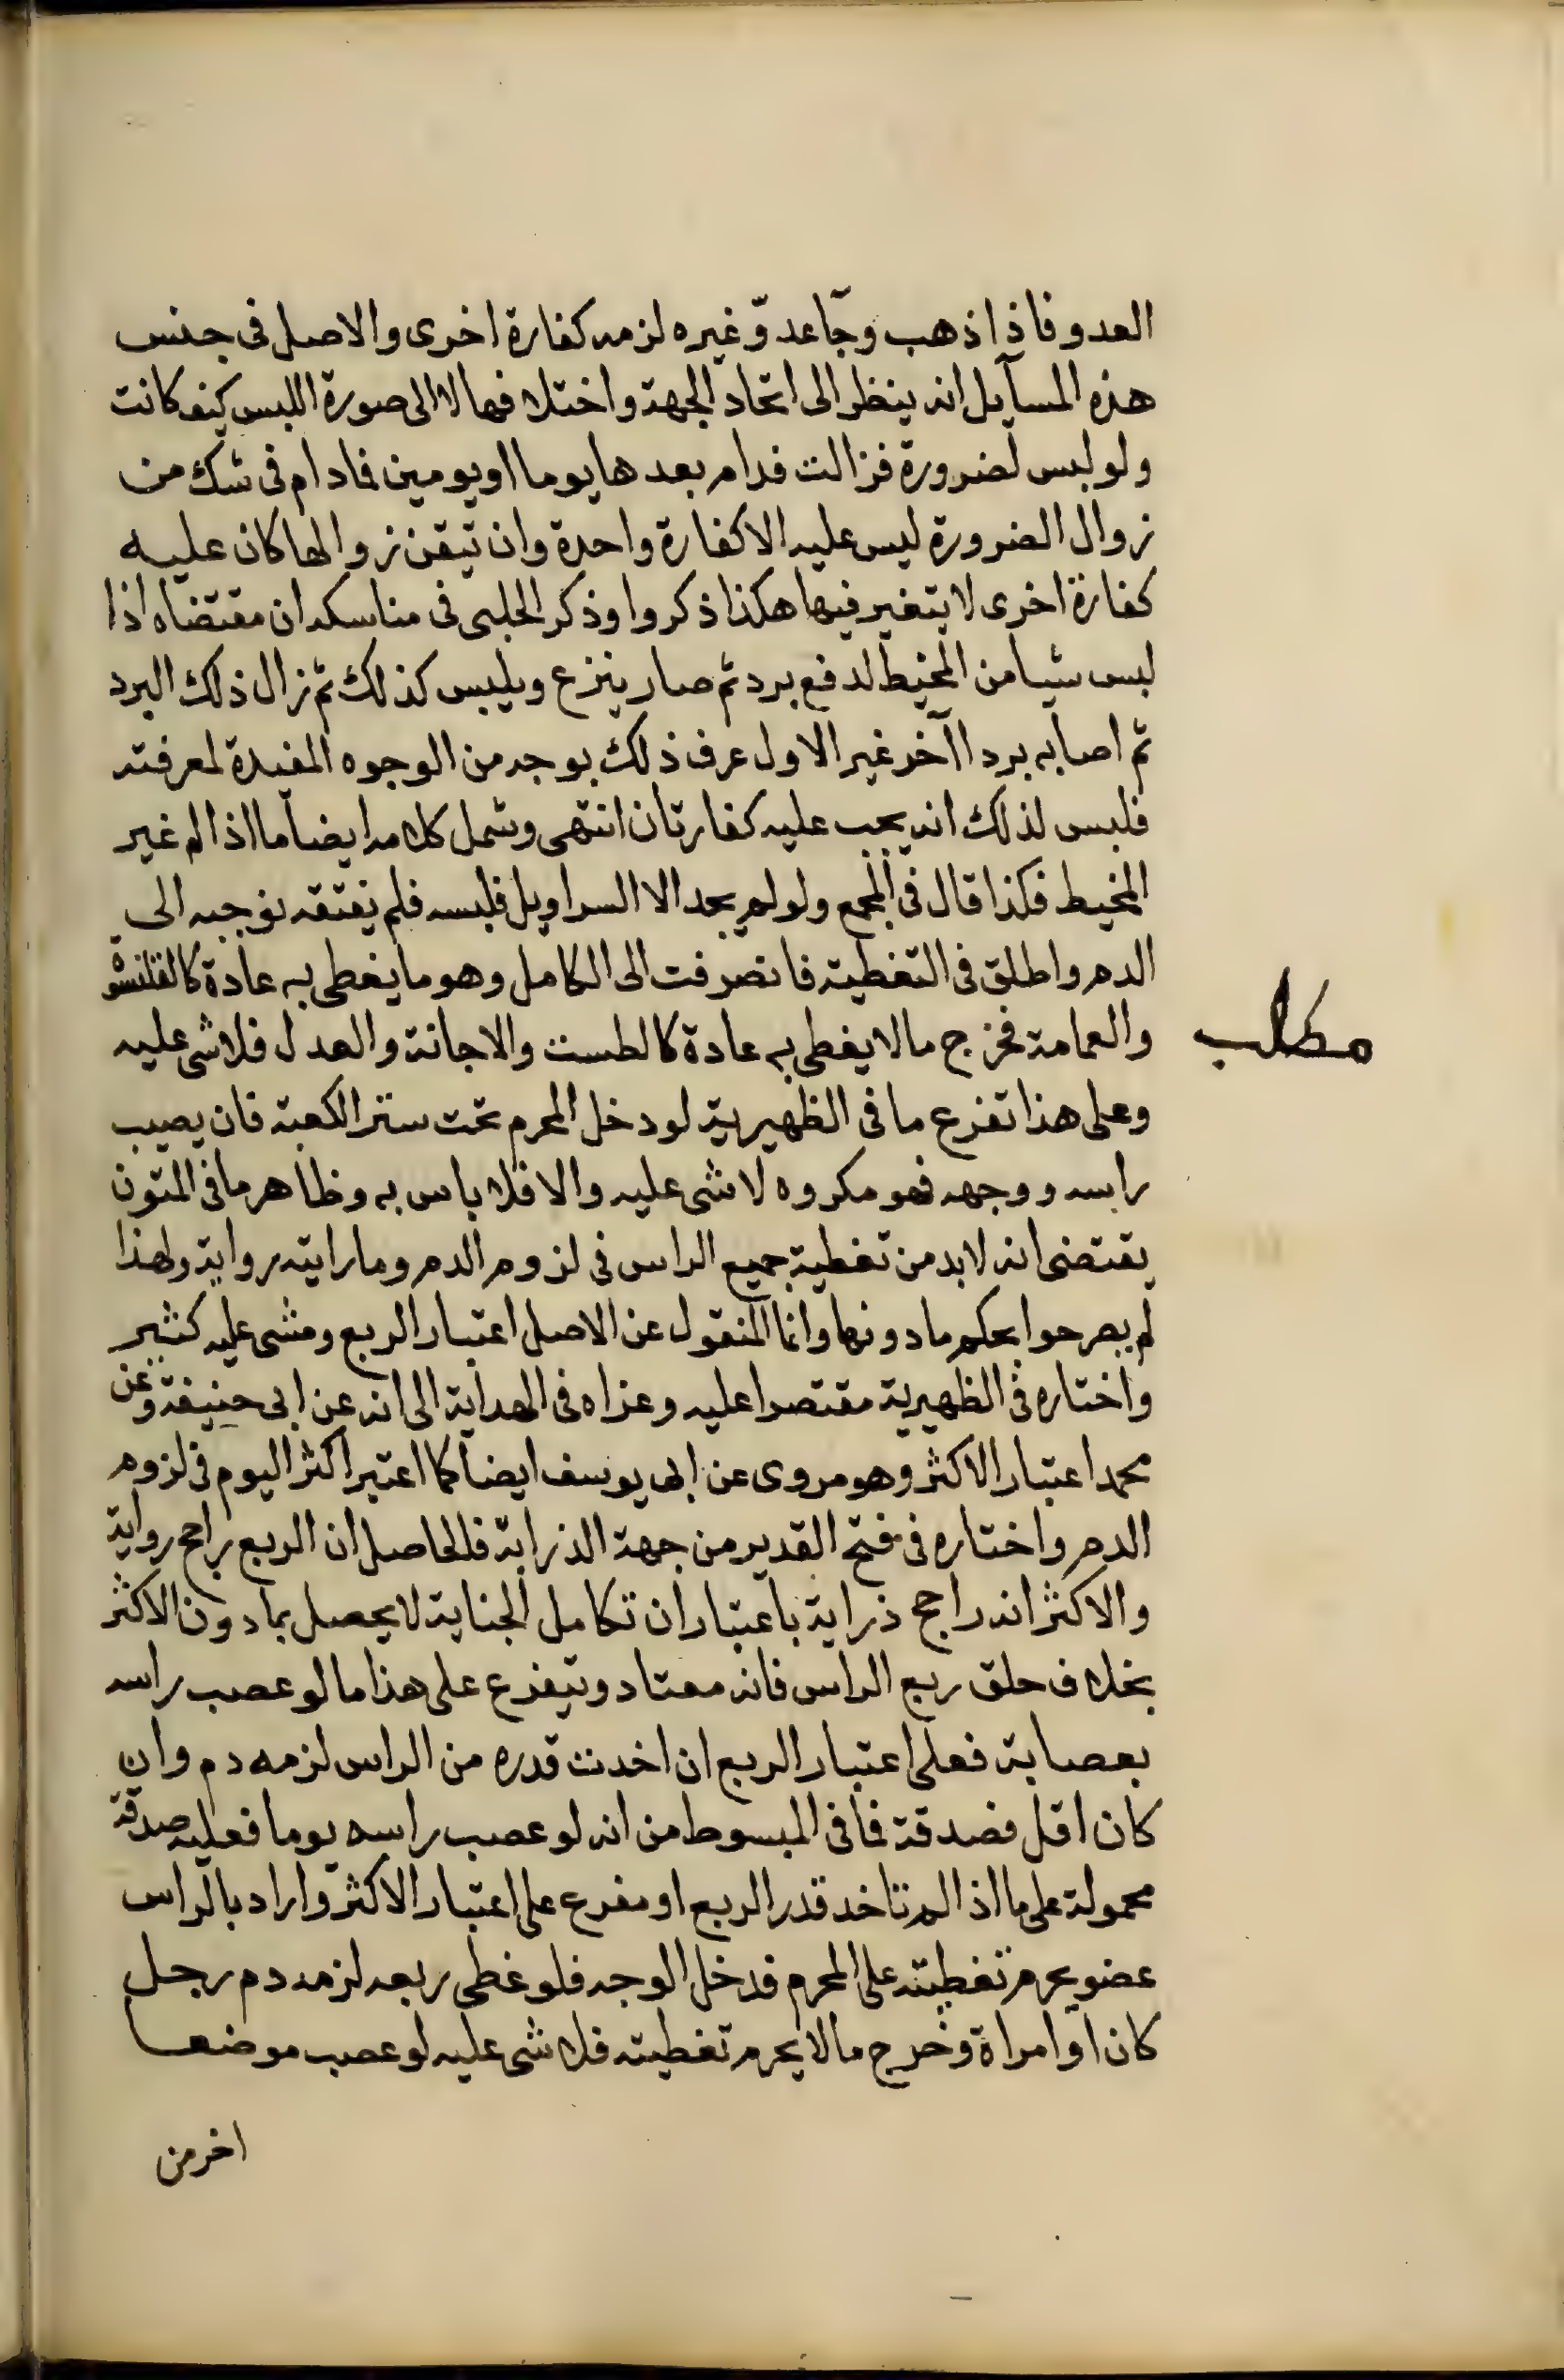 العدو فاذا ذهب وجآ عدوّ غيره لزمه كفارة اخرى والاصل فى جنس
هذه المسآيل انه ينظر الى اتحاد الجهة واختلافها لا الى صورة اللبس كيف كانت
ولو لبس لضرورة فزالت فدام بعدها يوما او يومين فمادام فى شك من
زوال الضرورة ليس عليه الا كفارة واحدة وان تيقن زوالها كان عليه
كفارة اخرى لا يتغير فيها هكذا ذكروا وذكر الحلبى فى مناسكه ان مقتضاه اذا
لبس شيا من المخيط لدفع برد ثم صار ينزع ويلبس كذلك ثم زال ذلك البرد
ثم اصابه برد اآخر غير الاول عرف ذلك بوجه من الوجوه المفيدة لمعرفته
فلبس لذلك انه يجب عليه كفارتان انتهى وشمل كلامه ايضا ما اذا لم غير
المخيط فكذا قال فى المجمع ولو لم يجد الا السراويل فلبسه فلم يفتقه نوجبه الى
الدم واطلق فى التغطية فانصرفت الى الكامل وهو ما يغطى به عادة كالقلنسوة
والعمامة فخرج ما لا يغطى به عادة كالطست والاجانة والعدل فلا شى عليه
مطلب
وعلى هذا تفرع ما فى الظهيرية لو دخل المحرم تحت ستر الكعبة فان يصيب
راسه ووجهه فهو مكروه لا شى عليه والا فلا باس به وظاهر ما فى المتون
يقتضى انه لا بد من تغطية جميع الراس فى لزوم الدم وما رايته رواية ولهذا
لم يصرحوا بحكم ما دونها وانما المنقول عن الاصل اعتبار الربع ومشى عليه كثير
واختاره فى الظهيرية مقتصرا عليه وعزاه فى الهداية الى انه عن ابى حنيفة وعن
محمد اعتبار الاكثر وهو مروى عن ابى يوسف ايضا كما اعتبر اكثر اليوم فى لزوم
الدم واختاره فى فتح القدير من جهة الذراية فالحاصل ان الربع راجح رواية
والاكثر انه راجح ذراية باعتبار ان تكامل الجناية لا يحصل بما دون الاكثر
بخلاف حلق ربع الراس فانه معتاد وتيفرع على هذا ما لو عصب راسه
بعصابة فعلى اعتبار الربع ان اخدت قدره من الراس لزمه دم وان
كان اقل فصدقة فما فى المبسوط من انه لو عصب راسه يوما فعليه صدقة
محمولة على ما اذا لم تاخد قدر الربع او مفرع على اعتبار الاكثر واراد بالراس
عضو يحرم تغطيته على المحرم فدخل الوجه فلو غطى ربعه لزمه دم رجل
كان او امراة وخرج ما لا يحرم تغطيته فلا شى عليه لو عصب موضعا
اخر من